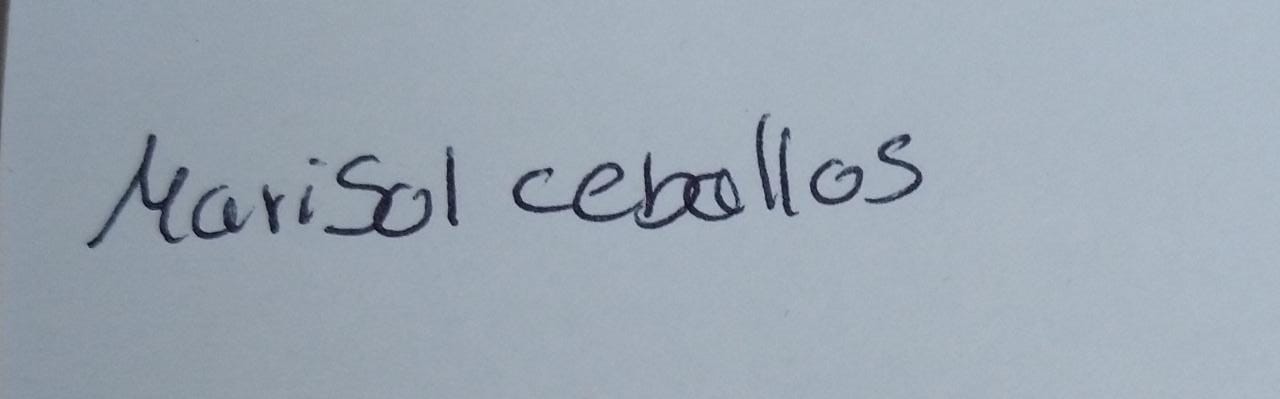 MariSol ceballos